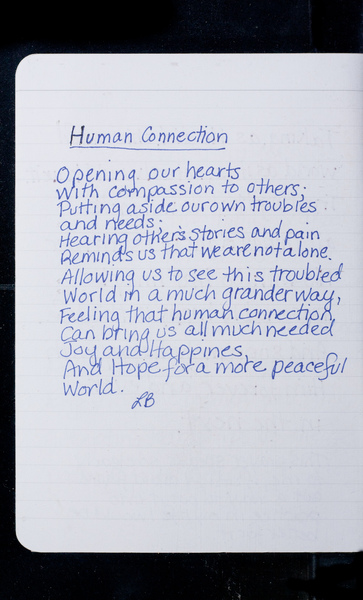 Human Connection
Opening our hearts
with compassion to others;
Putting aside our own troubles
and needs;
Hearing other's stories and pain
Reminds us that we are not alone.
Allowing us to see this troubled
World in a much grander way,
Feeling that human connection,
Can bring us all much needed
Joy and Happines,
And Hope for a more peaceful
World.
LB